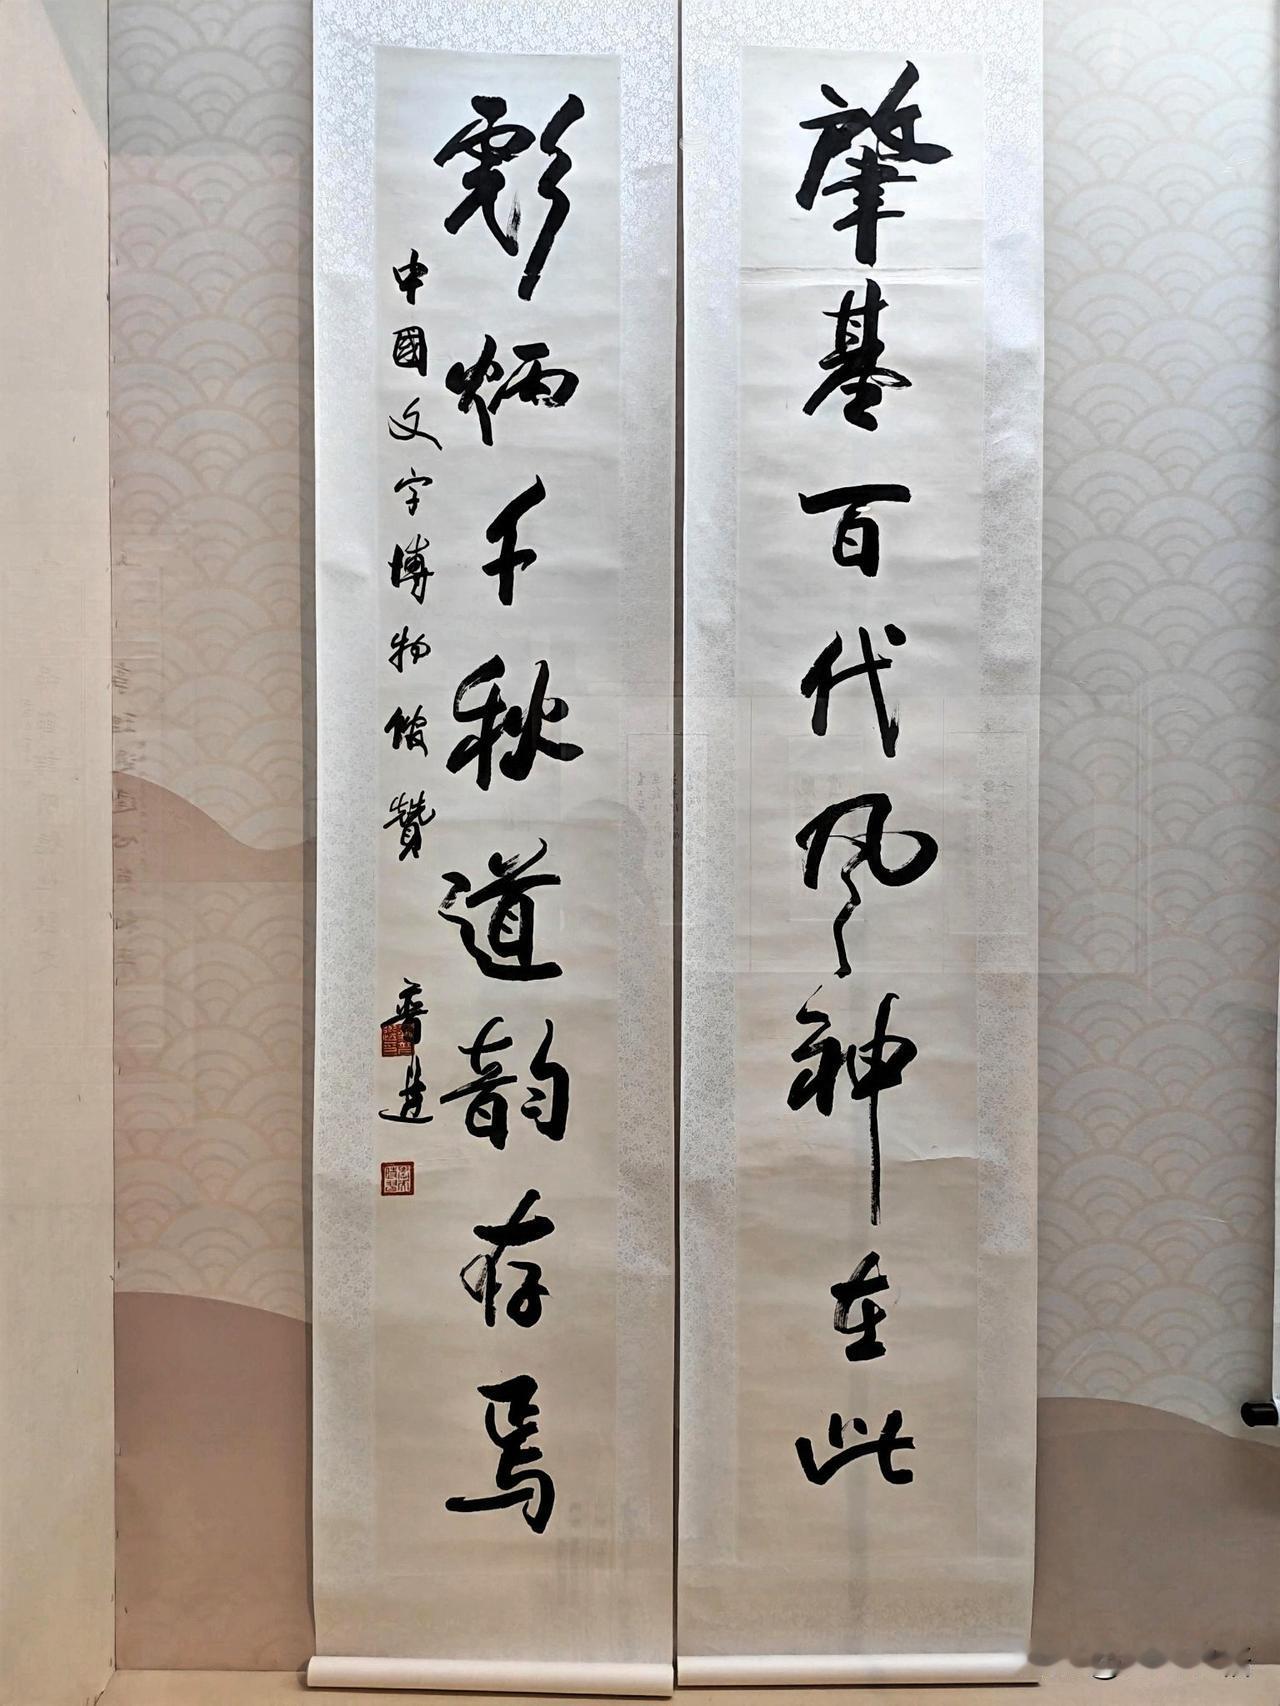 肇基百代风神在此
彪炳千秋道韵存焉
中國文字博物館贊